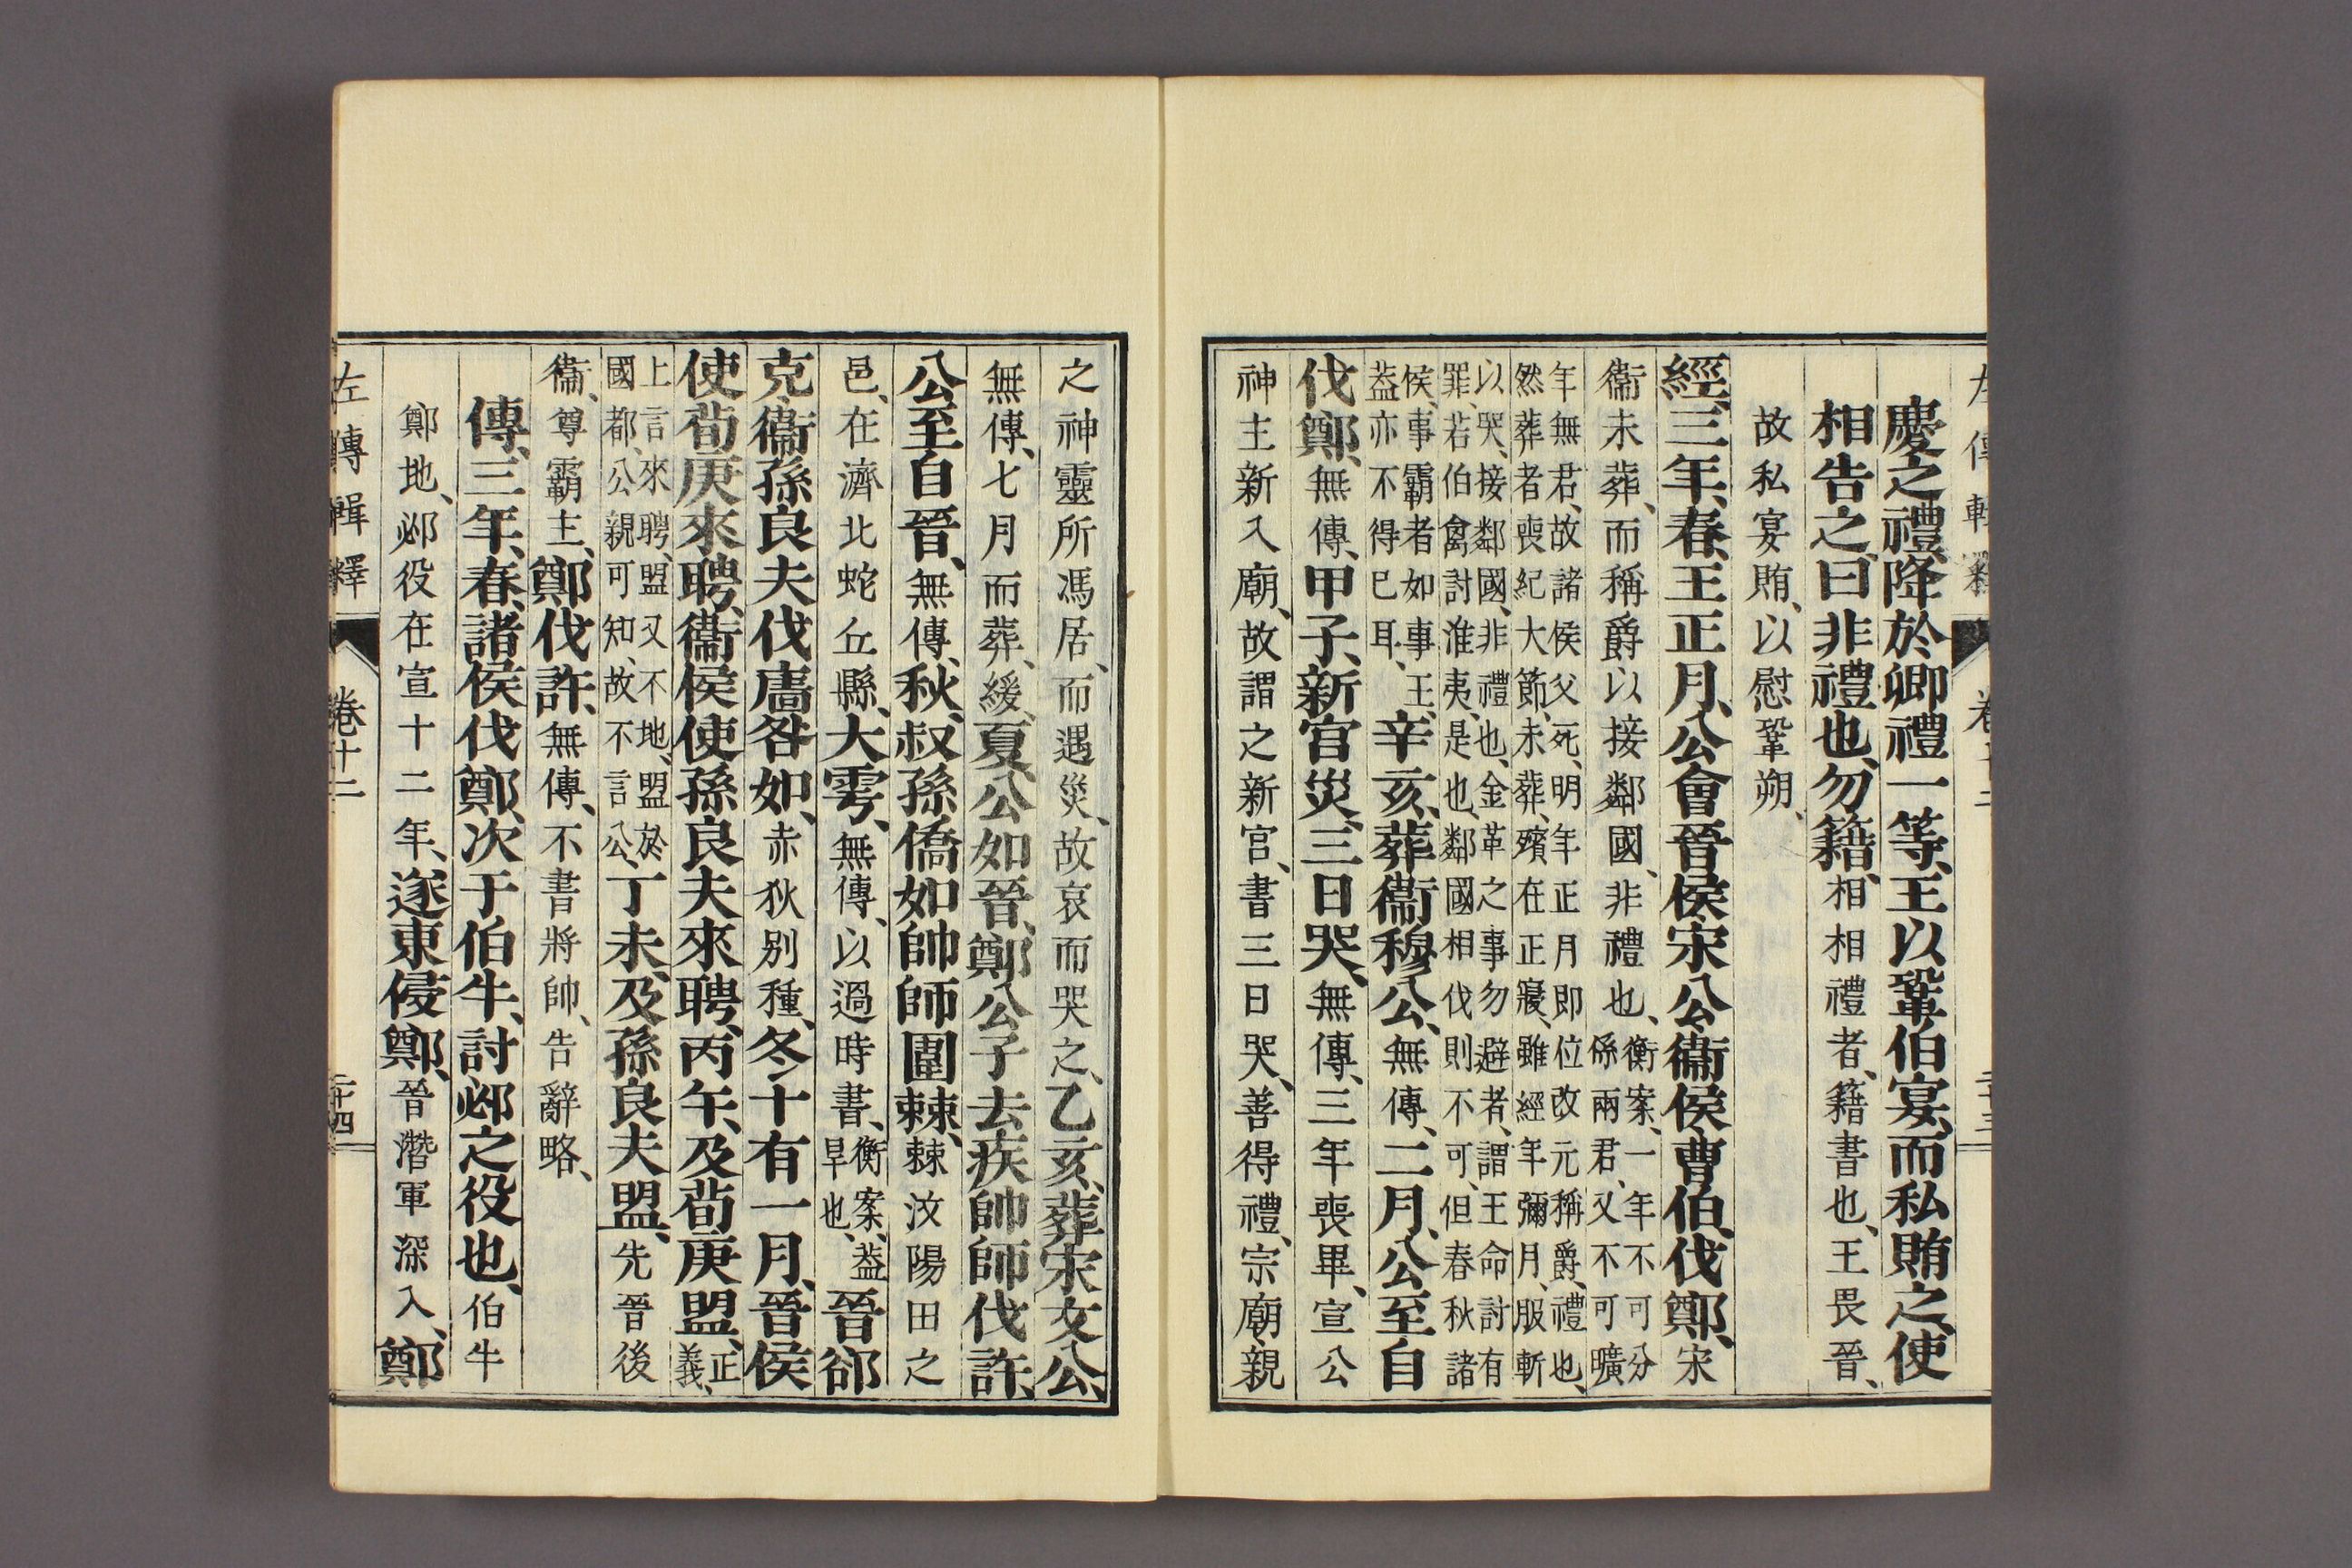 慶之禮、降於卿禮一等、王以鞏伯宴、而私賄之、使
相告之、曰非禮也、勿籍、相相禮者、籍書也、王畏晉、
故私宴賄、以慰鞏朔、
經、三年、春、王正月、公會晉侯宋公衞侯曹伯、伐鄭、宋
衞未葬、而稱爵以接鄰國、非禮也、衡案、一年不可分係兩君、又不可曠
年無君、故諸侯父死、明年正月即位改元稱爵、禮也、
然葬者喪紀大節、未葬、殯在正寢、雖經年彌月、服斬
以哭、接鄰國、非禮也、金革之事勿避者、謂王命討有
罪、若伯禽討淮夷、是也、鄰國相伐則不可、但春秋諸
侯、事霸者如事王、
葢亦不得已耳、
辛亥、葬衞穆公、無傳、二月、公至自
伐鄭、無傳、甲子、新宮災、三日哭、無傳、三年喪畢、宣公
神主新入廟、故謂之新宮、書三日哭、善得禮、宗廟、親
之神靈所馮居、而遇災、故哀而哭之、乙亥、葬宋文公、
無傳、七月而葬、緩、夏、公如晉、鄭公子去疾帥師伐許、
公至自晉、無傳、秋、叔孫僑如帥師圍棘、棘汶陽田之
邑、在濟北蛇丘縣、大雩、無傳、以過時書、衡案、葢旱也、晉郤
克衞孫良夫伐廧咎如、赤狄別種、冬、十有一月、晉侯
使荀庚來聘、衞侯使孫良夫來聘、丙午、及荀庚盟、正義、
上言來聘、盟又不地、盟於
國都、公親可知、故不言公、
丁未、及孫良夫盟、先晉後
衞、尊霸主、鄭伐許、無傳、不書將帥、告辭略、
傳、三年、春、諸侯伐鄭、次于伯牛、討邲之役也、伯牛
鄭地、邲役在宣十二年、遂東侵鄭、晉潛軍深入、鄭
左傳輯釋
卷十二
二十四